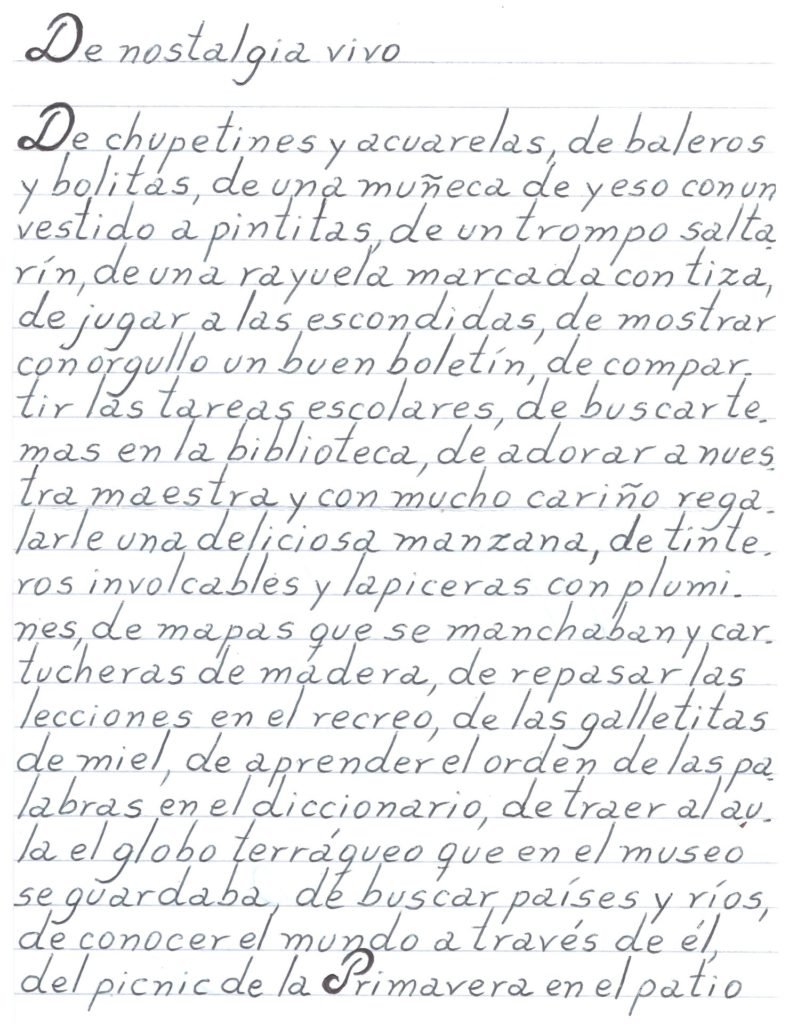 De nostalgia vivo
De chupetines y acuarelas, de baleros
y bolitas, de una muñeca de yeso con un
vestido a pintitas, de un trompo salta-
rín, de una rayuela marcada con tiza,
de jugar a las escondidas, de mostrar
con orgullo un buen boletín, de compar-
tir las tareas escolares, de buscar te-
mas en la biblioteca, de adorar a nues-
tra maestra y con mucho cariño rega-
larle una deliciosa manzana, de tinte-
ros involcables y lapiceras con plumi-
nes, de mapas que se manchaban y car-
tucheras de madera, de repasar las
lecciones en el recreo, de las galletitas
de miel, de aprender el orden de las pa-
labras en el diccionario, de traer al au-
la el globo terráqueo que en el museo
se guardaba, de buscar países y ríos,
de conocer el mundo a través de él,
del picnic de la Primavera en el patio